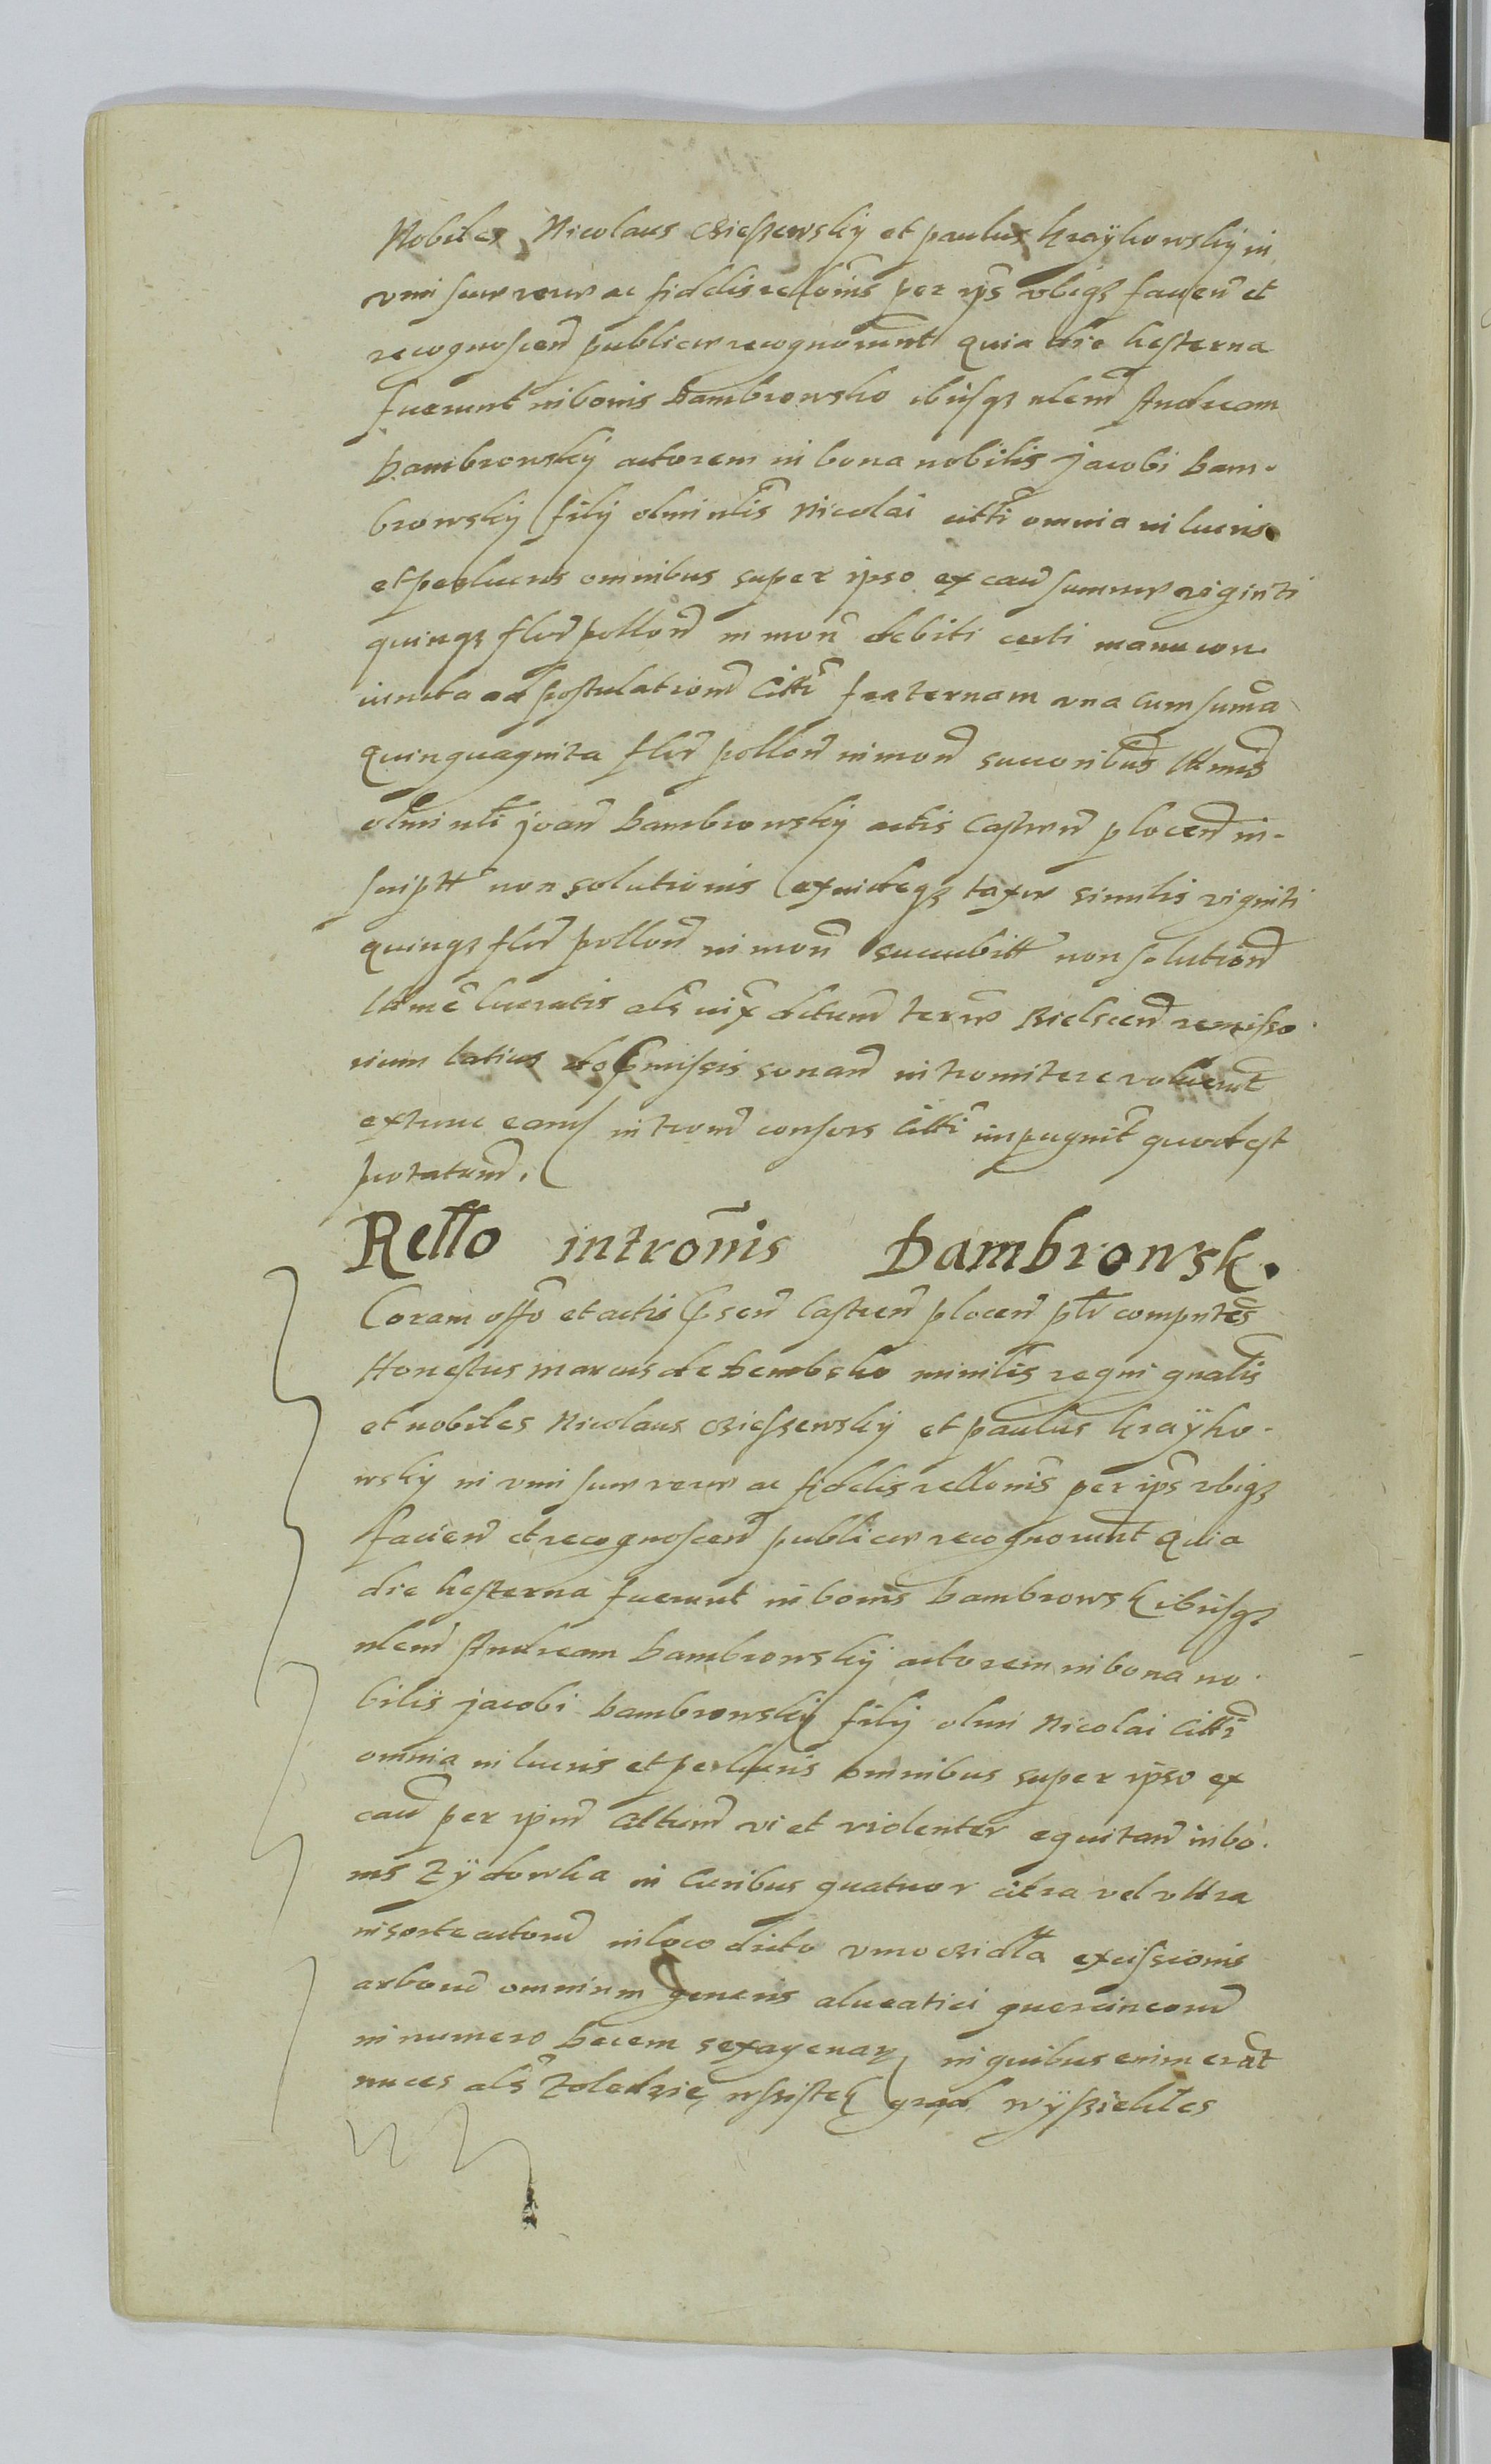 Nobiles Nicolaus Ciessewsky et paulus kraÿkowskÿ in
vim suæ veræ ac fidelis relloñis per ip̃s vbiqȝ facien̄ et
recognoscen̄ publicæ recognorunt quia die hesterna
fuerunt in bonis Dambrowsko ibiqȝ nlem̄ Andream
Dambrowskÿ actorem in bona nobilis Jacobi Dam-
browskÿ filÿ olim nlis̄ Nicolai citti omnia in lucris
et perlucris omnibus super ipso ex cau summæ viginti
quinqȝ flor̄ pollon̄ in mon̄ debiti certi manu con-
iuncta ad postulationem̄ Citti fraternam vna cum sum̄a
quinquaginta flor̄ pollon̄ in mon̄
olim nli Joan̄ Dambrowskÿ actis Castren̄ plocen̄ in-
scriptt non solutionis exindeqȝ taxæ similis viginti
quinqȝ flor̄ pollon̄ in mon̄ succubitt non solution̄
lucratis als̄ iux̄ dctum̄ terræ Bielscen̄ remisso
rium latius de p̄missis sonan̄ intromittere voluerunt
extunc eand introm̄ consors Citti impugnit̄ quod est
protatum̄.
Rello introm̄is Dambrowsk.
Coram offo et actis p̄sen̄ Castren̄ plocen̄ plr̄ compntes̄
Honestus marcus de Dembsko minilis̄ regni gnalis̄
et nobiles Nicolaus Ciessewskÿ et paulus kraÿko-
wskÿ in vim suæ veræ ac fidelis relloñis per ip̃s vbiqȝ
facien̄ et recognoscen̄ publicæ recognorunt Quia
die hesterna fuerunt in bonis Dambrowsk ibiqȝ
nlem̄ Andream Dambrowskÿ actorem in bona no-
bilis Jacobi Dambrowskÿ filÿ olim Nicolai Citti
omnia in lucris et perlucris omnibus super ipso ex
cau per ipm̄ Alium̄ vi et violenter equitan̄ in bo-
nis Zÿdowka in Curibus quatuor citra vel vltra
in sorte actorum̄ in loco dicto vmocsidla excissionis
arborum̄ omnium generis alueatici quercineorum̄
in numero Decem sexagenar̄ in quibus enim erat̄
nuces als̄ Zoledzie wssistek grad wÿssiektes